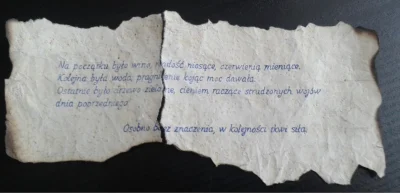 Na początku było wino, radość niosące, czerwienią mieniące.
Kolejna była woda, pragnienie kojąc moc dawała.
Ostatnie było drzewo zielone, cieniem raczące strudzonych wojów
dnia poprzedniego.
Osobno bez znaczenia, w kolejności tkwi siła.